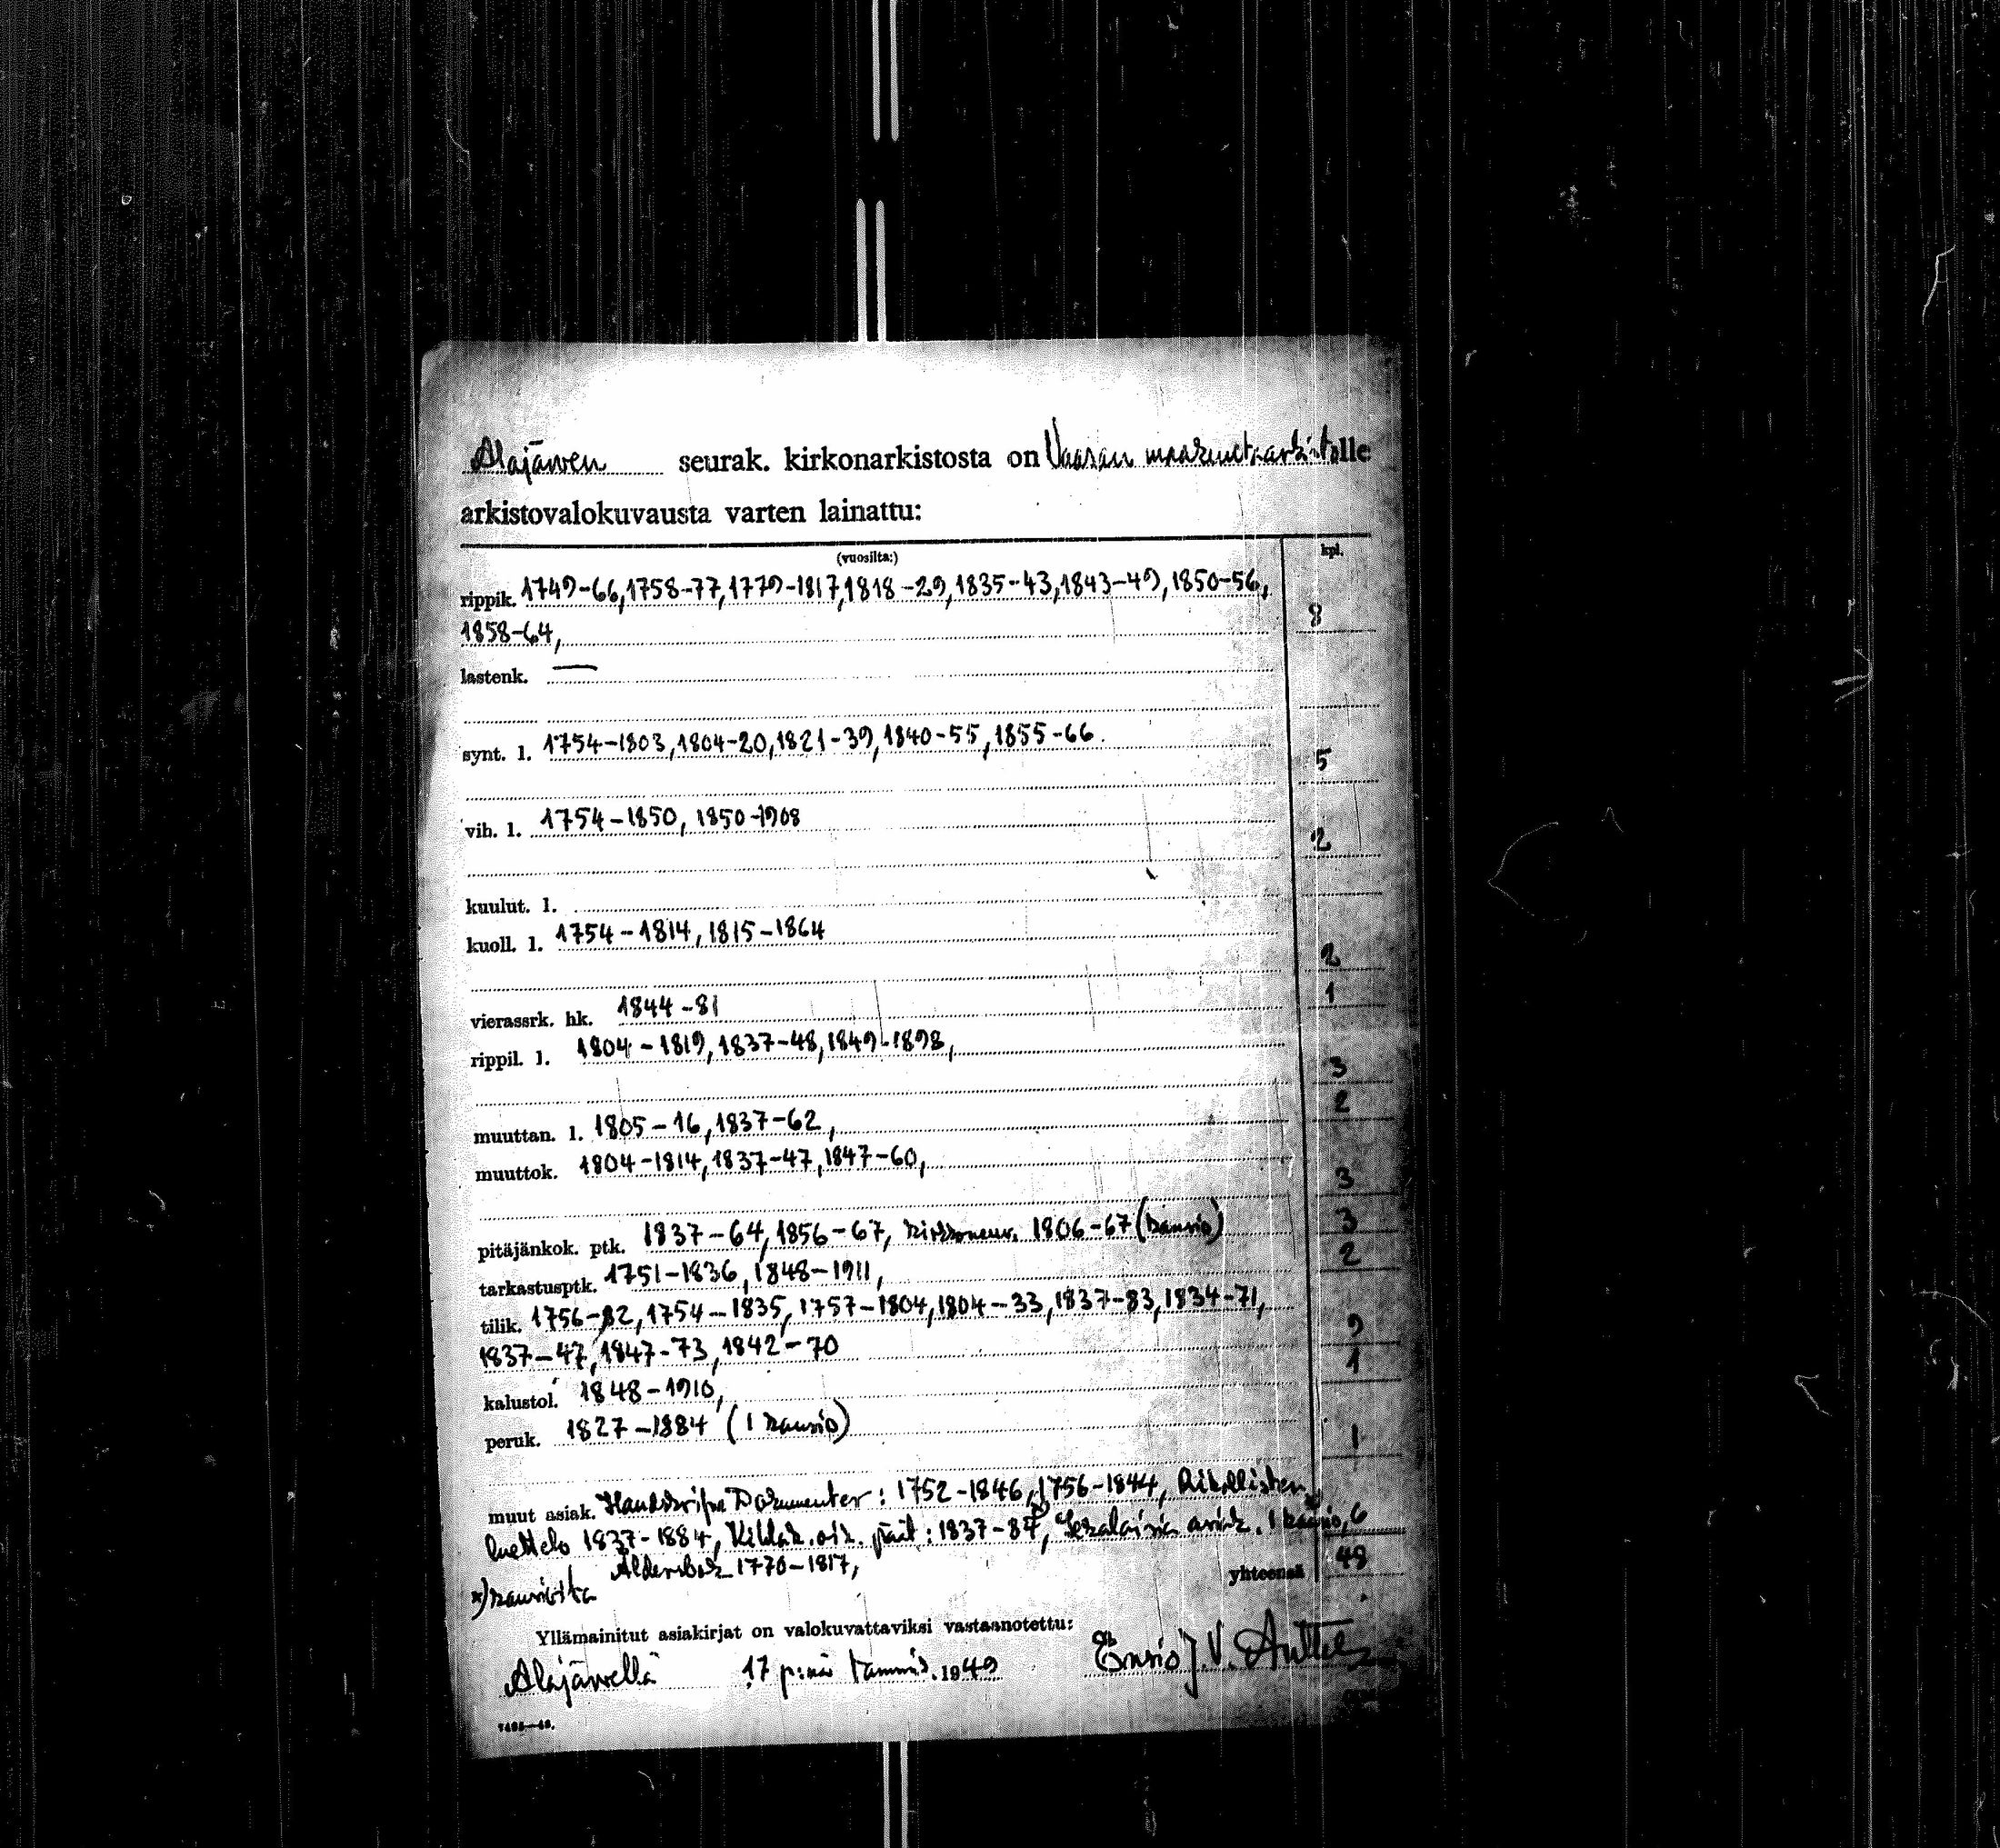 Alajärven seurak. kirkonarkistosta on Vaasan maakuntaarkistolle
arkistovalokuvausta varten lainattu:
(vuosilta:) kpl.
rippik. 1749-66, 1758-77, 1779-1817, 1818-29, 1835-43, 1843-49, 1850-56,
1858-64, 8
lastenk. —
synt. l. 1754-1803, 1804-20, 1821-39, 1840-55, 1855-66. 5
vih. l. 1754-1850, 1850-1908 2
kuulut. l.
kuoll. l. 1754-1814, 1815-1864 2
vierassrk. hk. 1844-81 1
rippil. l. 1804-1819, 1837-48, 1849-1898, 3
muuttan. l. 1805-16, 1837-62, 2
muuttok. 1804-1814, 1837-47, 1847-60, 3
pitäjänkok. ptk. 1837-64, 1856-67, kirkkoneuv. 1806-67 (kansio) 3
tarkastusptk. 1751-1836, 1848-1911, 2
tilik. 1756-82, 1754-1835, 1757-1804, 1804-33, 1837-83, 1834-71,
1837-47, 1847-73, 1842-70 9
kalustol. 1848-1910, 1
peruk. 1827-1884 (1 kansio) 1
muut asiak. Handskrifna Dokumenter: 1752-1846, 1756-1844, Rikollisten
luettelo 1837-1884, Kihlak. oik. päät: 1837-87, Sekalaisia asiak. 1 kansio, 6
Åldersbok 1770-1817,
x) kansiota yhteensä 48
Yllämainitut asiakirjat on valokuvattaviksi vastaanotettu:
Alajärvellä 17 p:nä tammik. 1949 Ensio J. V.
7495—48.